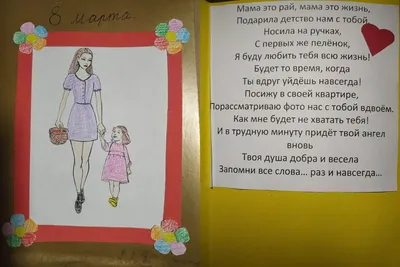 8 марта
Мама это рай, мама это жизнь,
Подарила детство нам с тобой
Носила на ручках,
С первых же пелёнок,
Я буду любить тебя всю жизнь!
Будет то время, когда
Ты вдруг уйдёшь навсегда!
Посижу в своей квартире,
Порассматриваю фото нас с тобой вдвоём.
Как мне будет не хватать тебя!
И в трудную минуту придёт твой ангел
вновь
Твоя душа добра и весела
Запомни все слова... раз и навсегда...